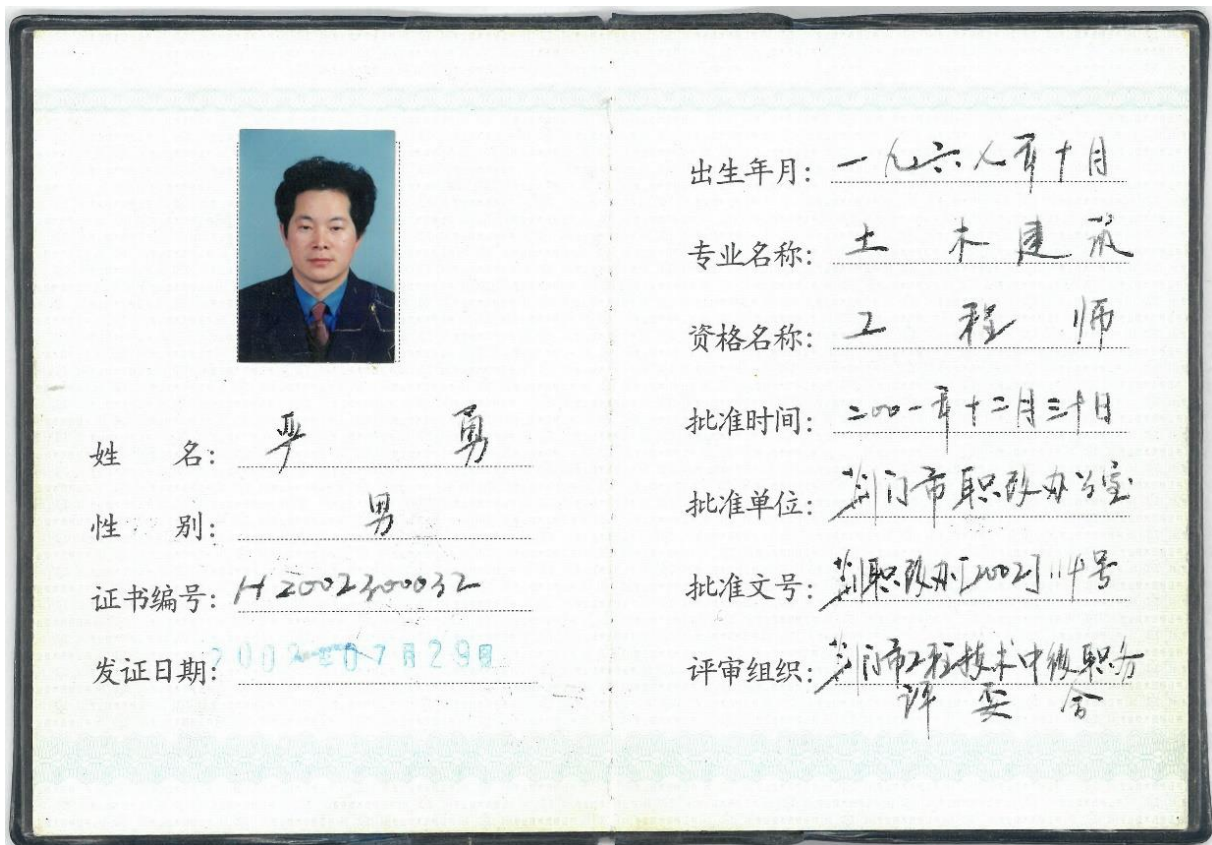 姓 名: 严 勇
性 别: 男
证书编号: H2002300032
发证日期: 2002年07月29日
出生年月: 一九六八年十月
专业名称: 土木建筑
资格名称: 工程师
批准时间: 二〇〇一年十二月三十日
批准单位: 荆门市职改办公室
批准文号: 荆职改办[2002]14号
评审组织: 荆门市工程技术中级职务
评委会